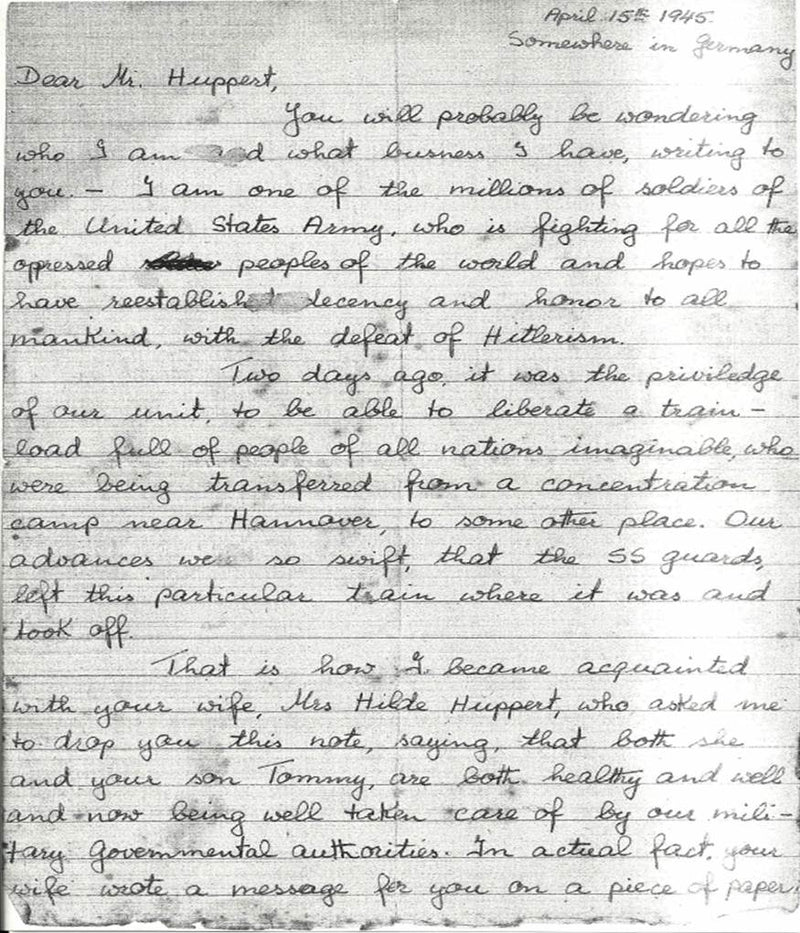 April 15th 1945.
Somewhere in Germany
Dear Mr. Huppert,
You will probably be wondering
who I am and what busness I have, writing to
you. – I am one of the millions of soldiers of
the United States Army, who is fighting for all the
oppressed peoples of the world and hopes to
have reestablished decency and honor to all
mankind, with the defeat of Hitlerism.
Two days ago, it was the priviledge
of our unit, to be able to liberate a train –
load full of people of all nations imaginable, who
were being transferred from a concentration
camp near Hannover, to some other place. Our
advances were so swift, that the SS guards,
left this particular train where it was and
took off.
That is how I became acquainted
with your wife, Mrs Hilde Huppert, who asked me
to drop you this note, saying, that both she
and your son Tommy, are both healthy and well
and now being well taken care of by our mili-
tary Governmental authorities. In actual fact, your
wife wrote a message for you on a piece of paper